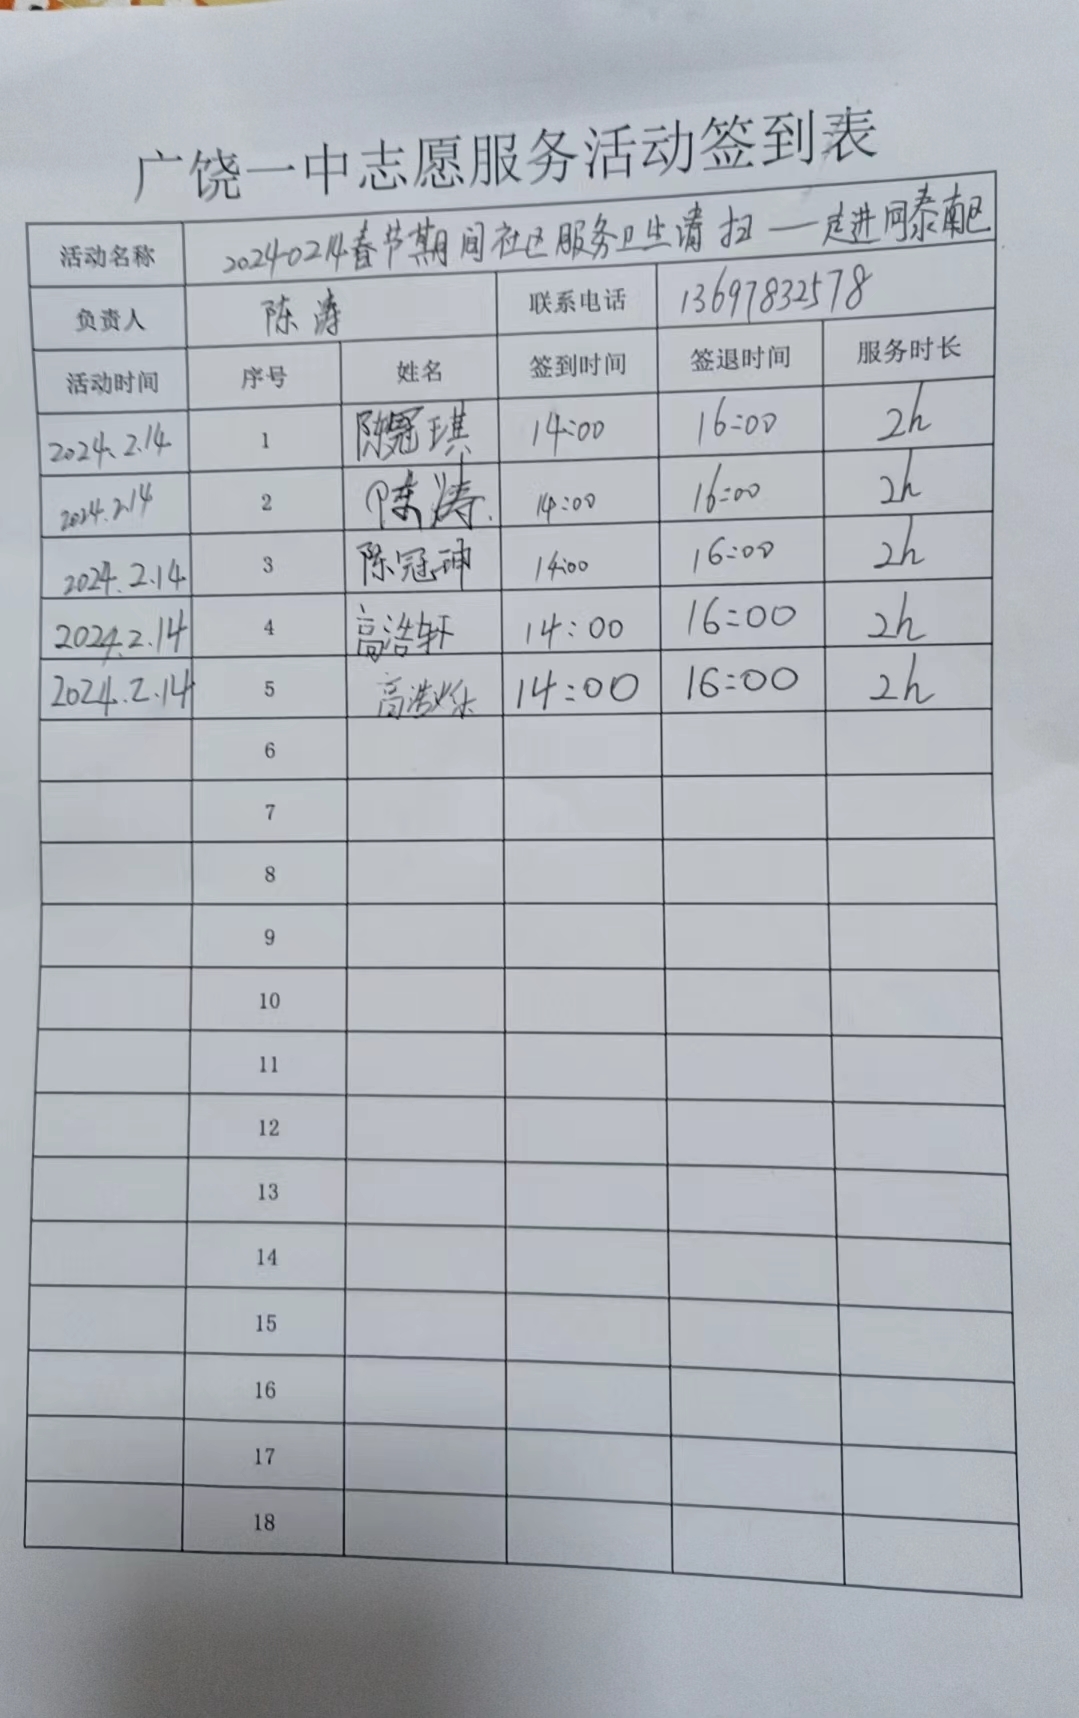 广饶一中志愿服务活动签到表
活动名称 20240214春节期间社区服务卫生请扫——走进同泰南区
负责人 陈涛 联系电话 13697832578
活动时间 序号 姓名 签到时间 签退时间 服务时长
2024.2.14 1 陈冠琪 14:00 16:00 2h
2024.2.14 2 陈涛 14:00 16:00 2h
2024.2.14 3 陈冠珅 14:00 16:00 2h
2024.2.14 4 高浩轩 14:00 16:00 2h
2024.2.14 5 高浩烁 14:00 16:00 2h
6
7
8
9
10
11
12
13
14
15
16
17
18